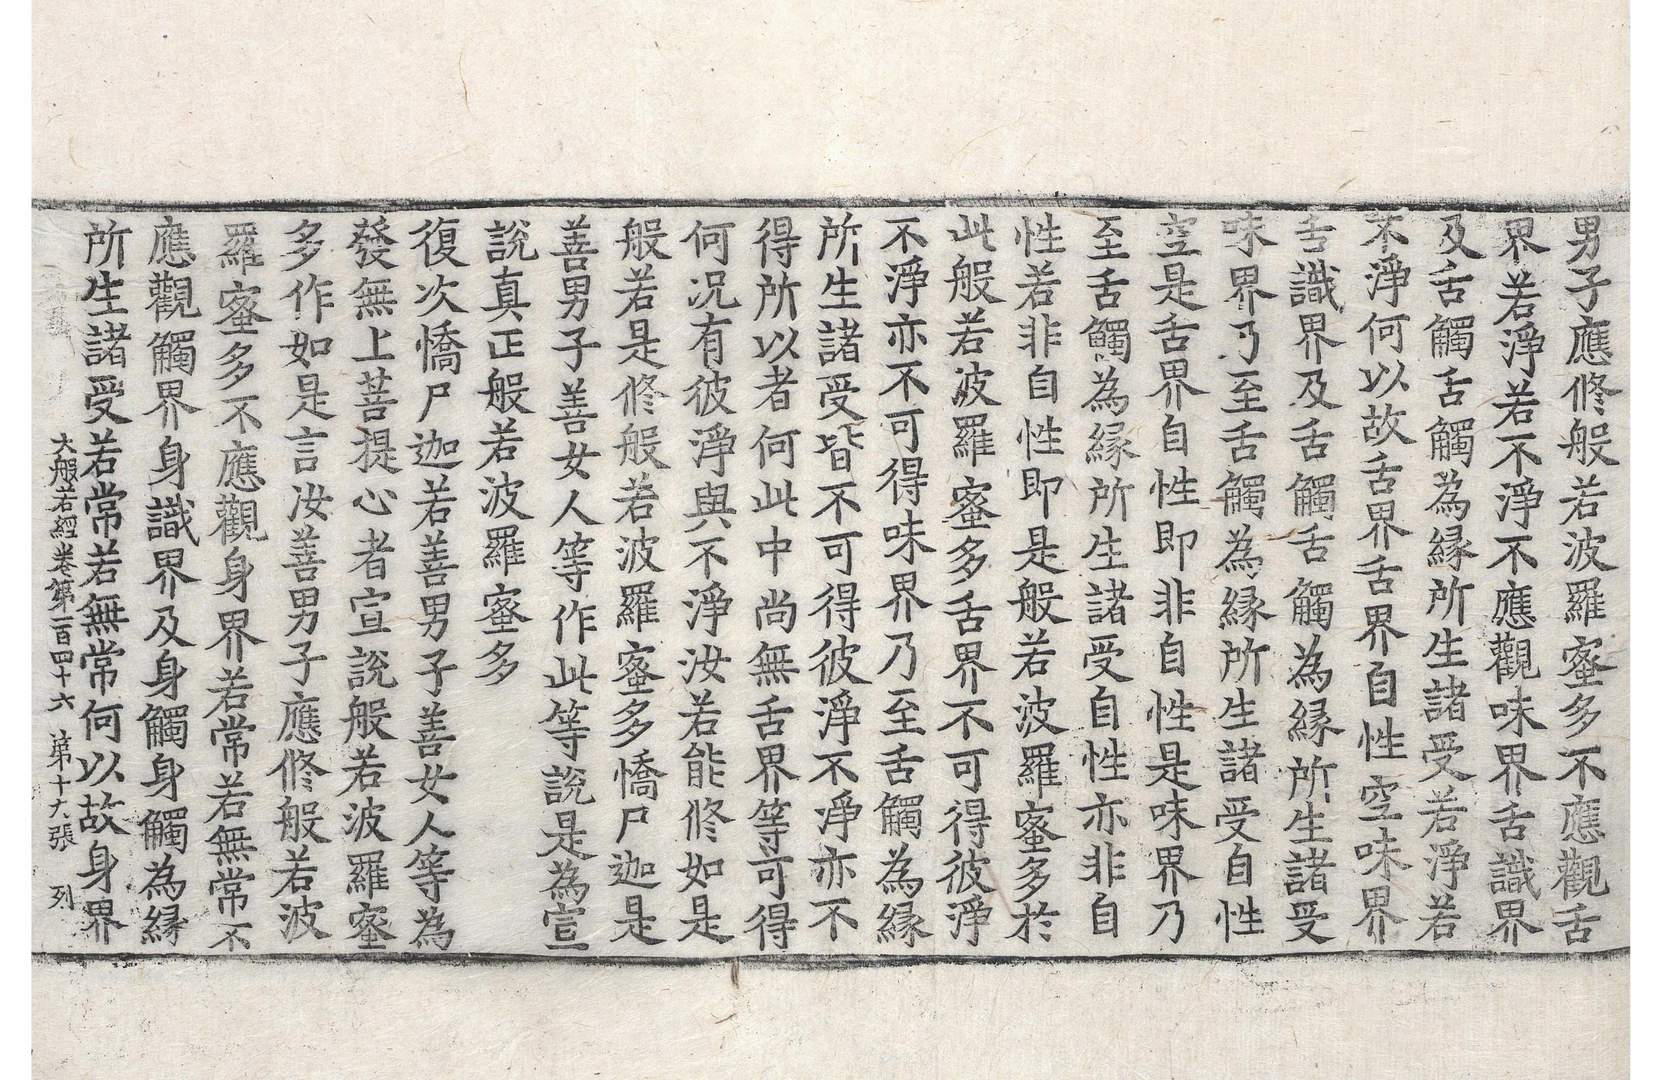 男子應修般若波羅蜜多不應觀舌
界若淨若不淨不應觀味界舌識界
及舌觸舌觸為縁所生諸受若淨若
不淨何以故舌界舌界自性空味界
舌識界及舌觸舌觸為縁所生諸受
味界乃至舌觸為縁所生諸受自性
空是舌界自性即非自性是味界乃
至舌觸為縁所生諸受自性亦非自
性若非自性即是般若波羅蜜多於
此般若波羅蜜多舌界不可得彼淨
不淨亦不可得味界乃至舌觸為縁
所生諸受皆不可得彼淨不淨亦不
得所以者何此中尚無舌界等可得
何况有彼淨與不淨汝若能修如是
般若是修般若波羅蜜多憍尸迦是
善男子善女人等作此等說是為宣
說真正般若波羅蜜多
復次憍尸迦若善男子善女人等為
發無上菩提心者宣說般若波羅蜜
多作如是言汝善男子應修般若波
羅蜜多不應觀身界若常若無常不
應觀觸界身識界及身觸身觸為縁
所生諸受若常若無常何以故身界
大般若經卷第一百四十六 第十六張 列